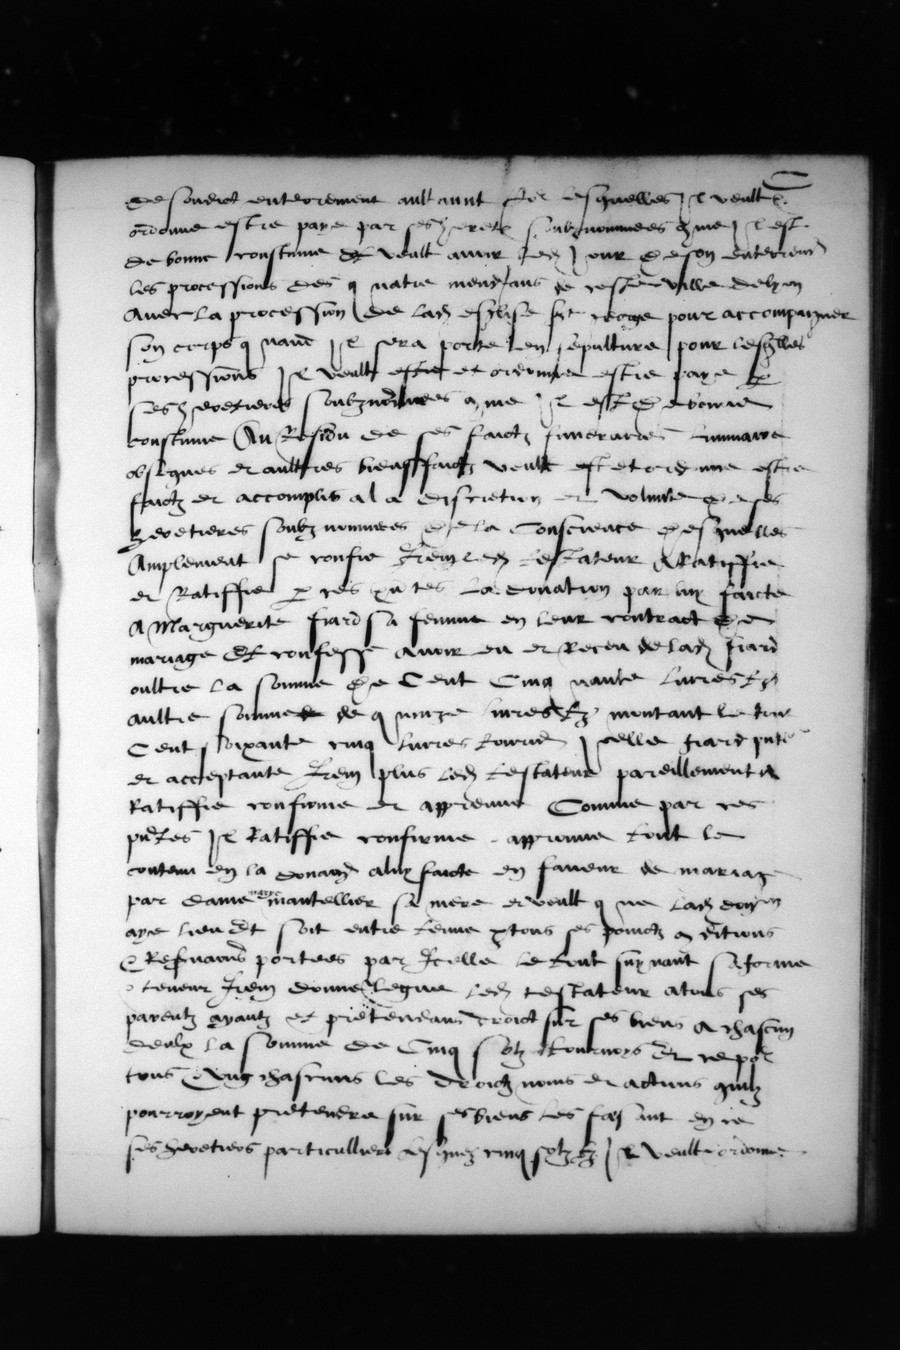 de sondict enterrement aultant sol lesquelles Il veult &
ordonne estre paye par ses heretz soubznommees come Il est
de bonne coustume Et veult avoir led Jour de son enterremt
les processions des quatre mendians de ceste ville de lyon
avec la procession de lad esglise pour accompaigner
son corps quant Il sera porte en sepulture pour lesqlles
processions Il veult et ordonne estre paye p
ses heretieres soubznommees come Il est de bonne
coustume Au Residu de ses faictz funeraires luminaire
obseques et aultres bienffaictz veult et ordonne estre
faictz et accomplis a la discretion et volunte de ses
heretieres soubz nommees de la Conscience desquelles
Amplement se confie Item led testateur A Ratiffie
et Ratiffie p ces pntes La donation par luy faicte
A Marguerite fiard sa femme en leur contract de
mariage Et confesse avoir eu et Receu de lad fiard
oultre la somme de Cent Cinquante livres tz
aultre somme de quinze livres tz montant le tout
Cent soixante cinq livres tournois Icelle fiard pnte
et acceptante Item plus led testateur pareillement a
Ratiffie confirme et appreuve Comme par ces
pntes Il Ratiffie confirme appreuve tout le
contenu en la donaon a luy faicte en faveur de mariage
par dame mantellier sa mere et veult que lad donaon
aye lieu Et soit entretenue en tous ses poinctz conditions
& Reservaons portees par Icelle le tout suyvant sa forme
& teneur Item donne legue led testateur a tous ses
parentz ayantz et pretendans droict sur ses biens a chascun
deulx la somme de Cinq solz tournoys Et ce pol
tous & ungchascuns les droictz noms et actions quilz
pourroyent pretendre sur ses biens les faisant en ce
ses heretiers particulliers desquelz cinq solz tz Il veult & ordonne